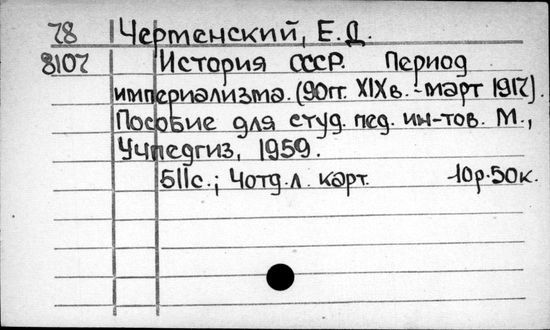 78 Черменский, Е.Д.
8107 История СССР. Период
империализма. (90гг. XIXв. - март 1917).
Пособие для студ. пед. ин-тов. М.,
Учпедгиз, 1959.
511с.; 4отд.л. карт. 10р.50к.